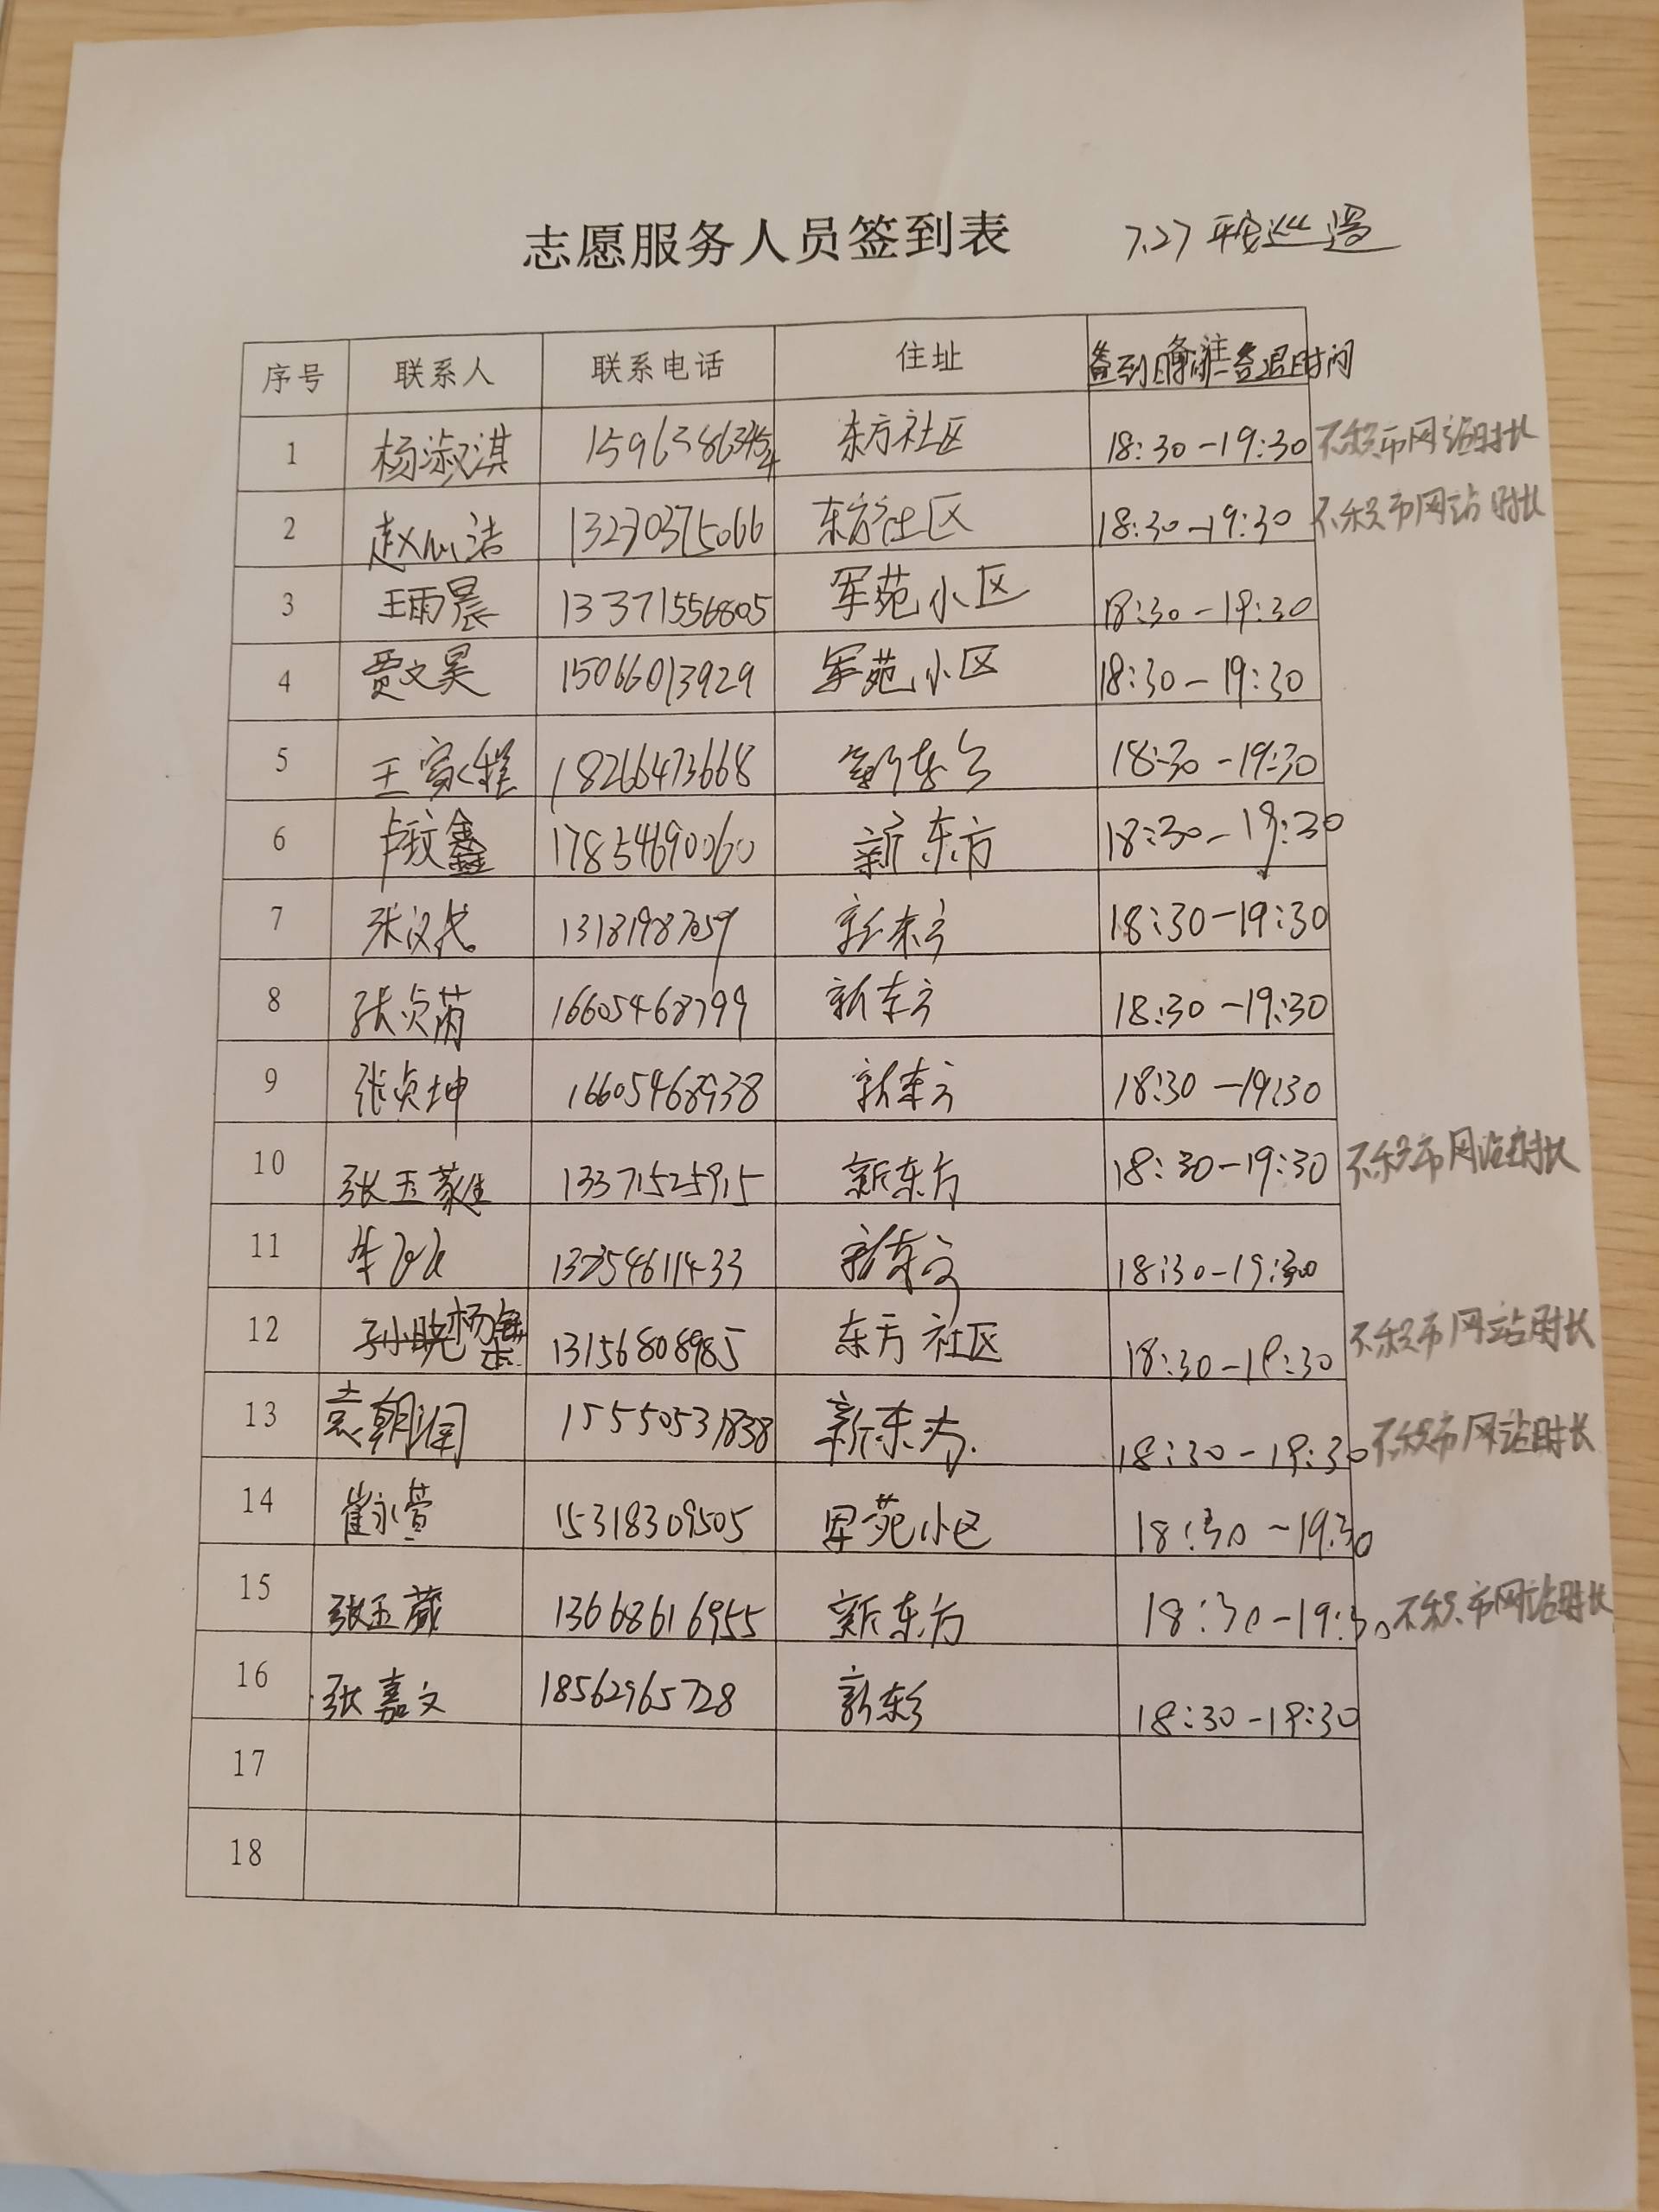 志愿服务人员签到表 7.27 平安巡逻
序号 联系人 联系电话 住址 备注 签到时间-签退时间
1 杨淑淇 东方社区 18:30-19:30 不积市网站时长
2 赵心洁 13230375066 东方社区 18:30-19:30 不积市网站时长
3 王雨晨 13371556805 军苑小区 18:30-19:30
4 贾文昊 15066013929 军苑小区 18:30-19:30
5 王家程 18266473668 新东方 18:30-19:30
6 卢玟鑫 17854690060 新东方 18:30-19:30
7 张汉 新东方 18:30-19:30
8 张贞芮 16605468799 新东方 18:30-19:30
9 张贞坤 16605468938 新东方 18:30-19:30
10 张玉 13371525915 新东方 18:30-19:30 不积市网站时长
11 新东方 18:30-19:30
12 杨 13156808985 东方社区 18:30-19:30 不积市网站时长
13 袁朝润 15550531838 新东方 18:30-19:30 不积市网站时长
14 崔永萱 15318309505 军苑小区 18:30-19:30
15 张玉葳 13668616955 新东方 18:30-19:30 不积市网站时长
16 张嘉文 18562965728 新东方 18:30-19:30
17
18